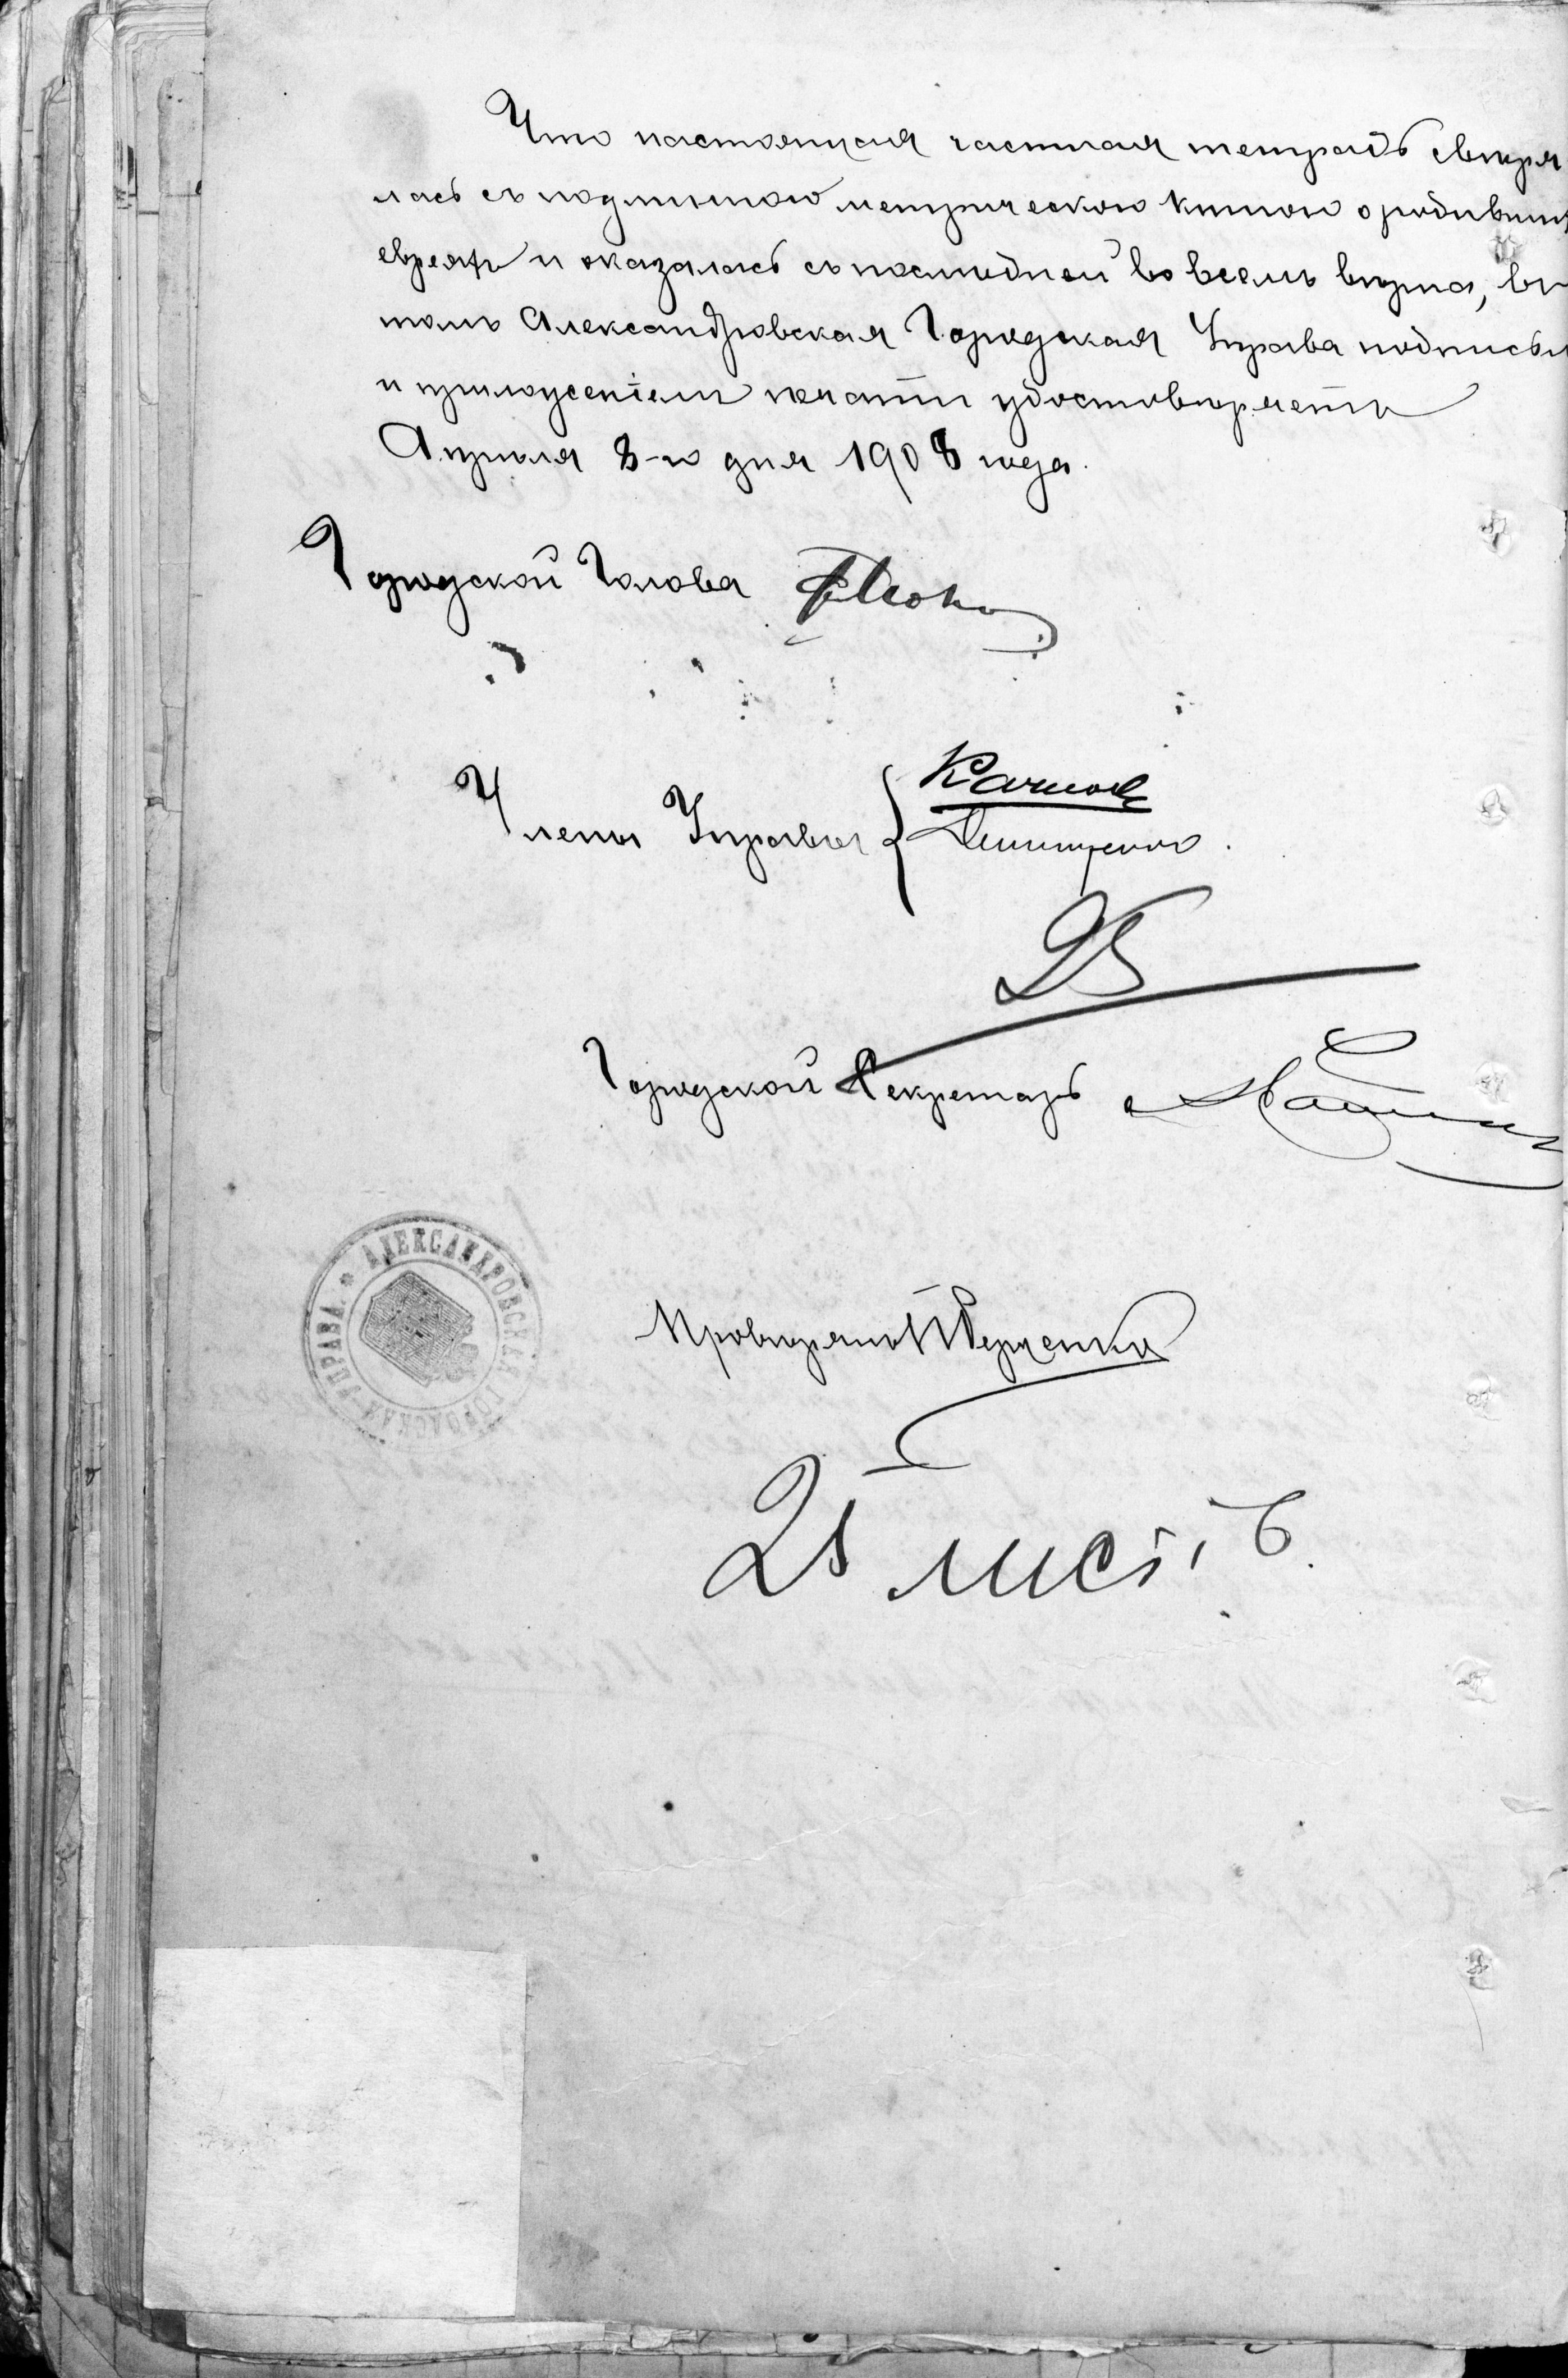 Что настоящая частная тетрадь свѣря
лась съ подлинною метрическою книгою о родивших
евреяхъ и оказалась съ послѣдней во всемъ вѣрна, въ
томъ Александровская Городская Управа подписью
и приложеніемъ печати удостовѣряетъ
Апрѣля 8-го дня 1908 года.
Городской Голова
Члены Управы
25
Городской Секретарь
АЛЕКСАНДРОВСКАЯ ГОРОДСКАЯ УПРАВА
Провѣрялъ
25 лист, в.